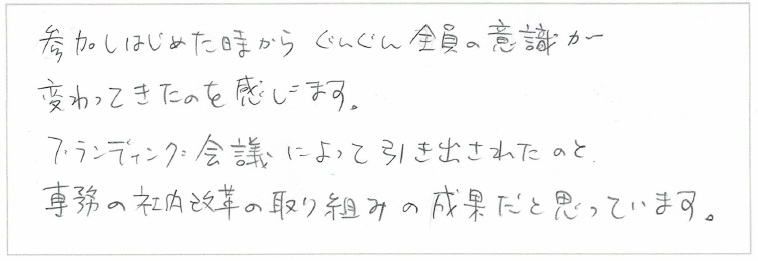 参加しはじめた時から ぐんぐん 全員の意識が
変わってきたのを感じます。
ブランディング会議によって引き出されたのと
専務の社内改革の取り組みの成果だと思っています。